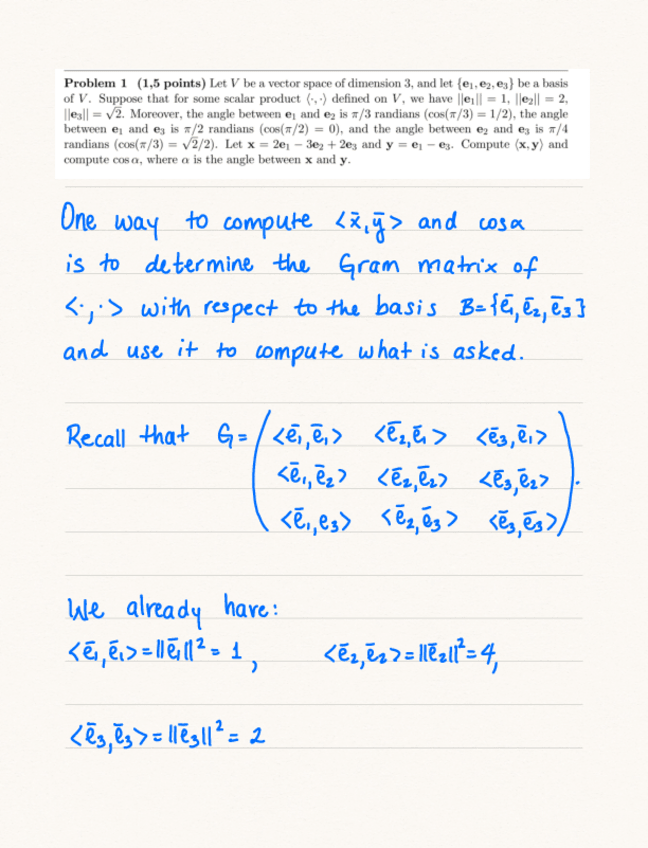 Problem 1 (1,5 points) Let V be a vector space of dimension 3, and let {e₁, e₂, e₃} be a basis
of V. Suppose that for some scalar product ⟨·, ·⟩ defined on V, we have ||e₁|| = 1, ||e₂|| = 2,
||e₃|| = √2. Moreover, the angle between e₁ and e₂ is π/3 radians (cos(π/3) = 1/2), the angle
between e₁ and e₃ is π/2 radians (cos(π/2) = 0), and the angle between e₂ and e₃ is π/4
radians (cos(π/3) = √2/2). Let x = 2e₁ − 3e₂ + 2e₃ and y = e₁ − e₃. Compute ⟨x, y⟩ and
compute cos α, where α is the angle between x and y.
One way to compute <x̄,ȳ> and cosα
is to determine the Gram matrix of
<·,·> with respect to the basis B={ē₁,ē₂,ē₃}
and use it to compute what is asked.
Recall that G= ( <ē₁,ē₁> <ē₂,ē₁> <ē₃,ē₁>
<ē₁,ē₂> <ē₂,ē₂> <ē₃,ē₂>
<ē₁,e₃> <ē₂,ē₃> <ē₃,ē₃> ).
We already have:
<ē₁,ē₁>=||ē₁||²= 1, <ē₂,ē₂>=||ē₂||²=4,
<ē₃,ē₃>=||ē₃||²= 2